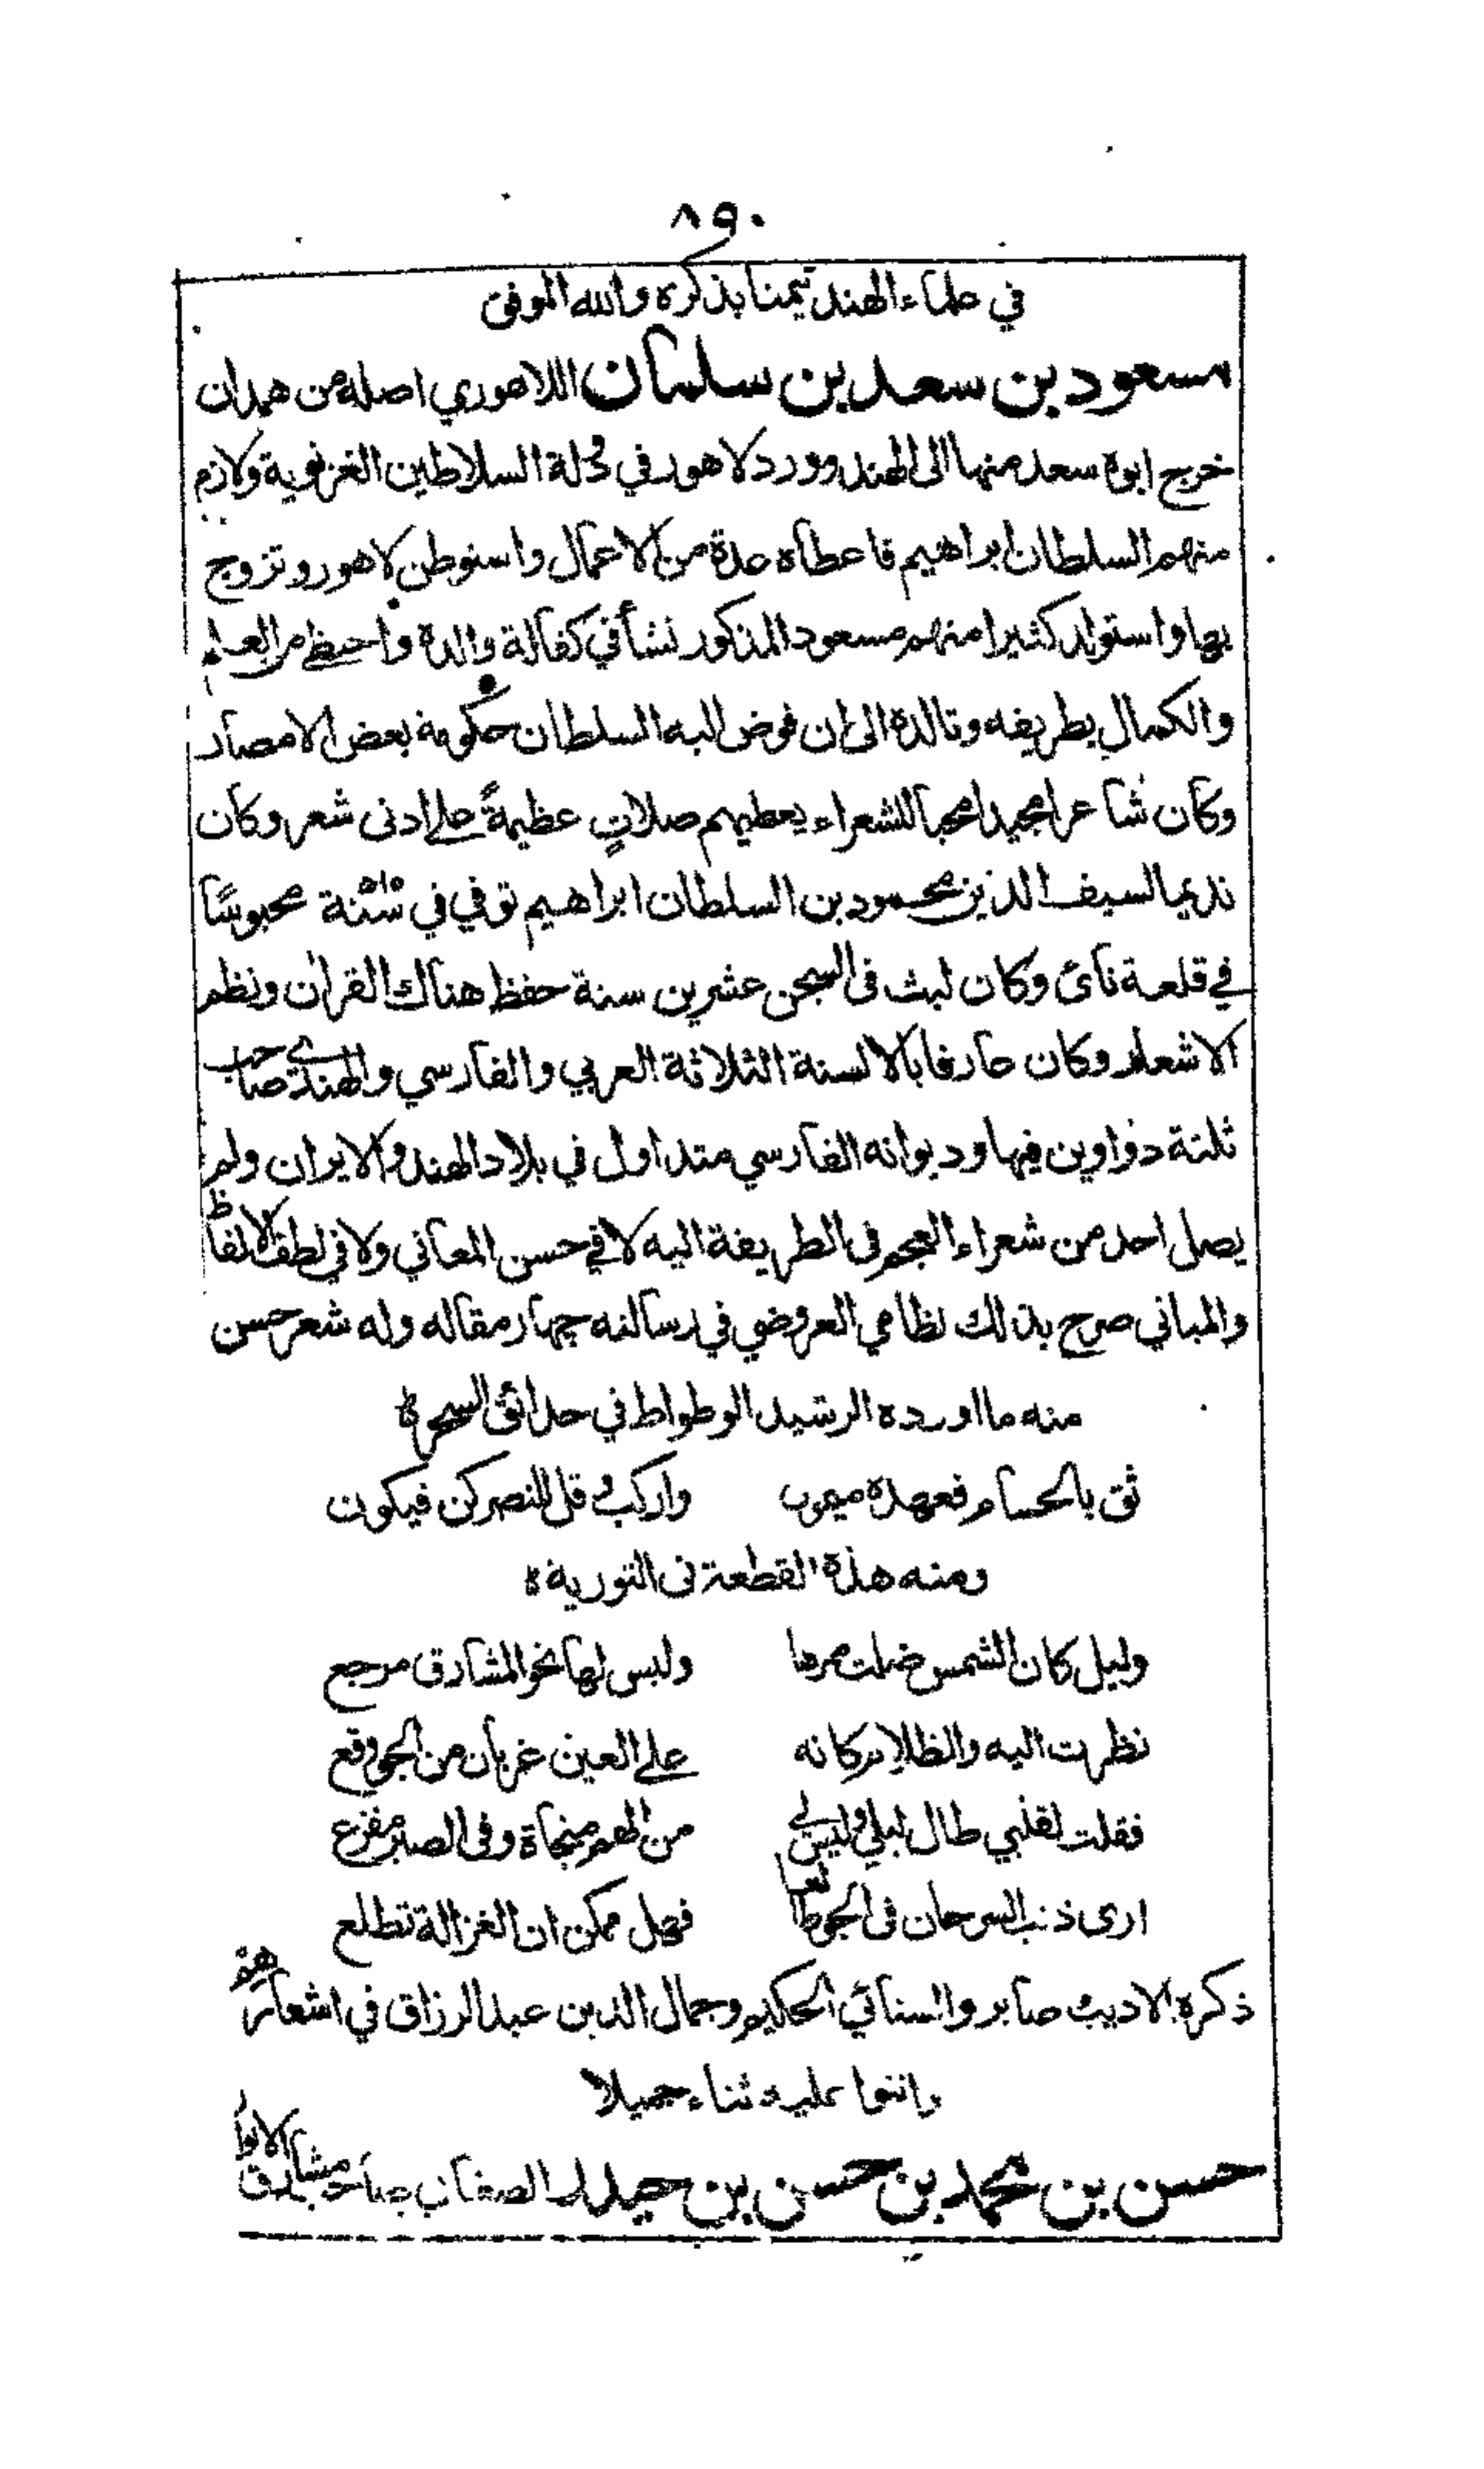 ٨٩٠
في علماء الهند تيمنا بذكره والله الموفق
مسعود بن سعد بن سلمان اللاهوري اصله من همدان
خرج ابوه سعد منها الى الهند وورد لاهور في دولة السلاطين الغزنوية ولازم
منهم السلطان ابراهيم فاعطاه عدة من الاعمال واستوطن لاهور وتزوج
بها واستولد كثيرا منهم مسعود المذكور نشأ في كفالة والده واحتظ من العلم
والكمال بطريفه وتالده الى ان فوض اليه السلطان حكومة بعض الامصار
وكان شاعرا مجيدا محبا للشعراء يعطيهم صلات عظيمة على ادنى شعر وكان
نديما لسيف الدين محمود بن السلطان ابراهيم توفي في سنة محبوسًا
في قلعة نائ وكان لبث في السجن عشرين سنة حفظ هناك القران ونظم
الاشعار وكان عارفا بالالسنة الثلاثة العربي والفارسي والهندي صاحب
ثلثة دواوين فيها وديوانه الفارسي متداول في بلاد الهند والايران ولم
يصل احد من شعراء العجم في الطريقة اليه لا في حسن المعاني ولا في لطف الالفاظ
والمباني صرح بذلك نظامي العروضي في رسالته چهار مقاله وله شعر حسن
منه ما اورده الرشيد الوطواط في حدائق السحر ه
ثق بالحسام فعهده ميمون واركب و قل للنصر كن فيكون
ومنه هذه القطعة في التورية ه
وليل كان الشمس ضلت ممرها وليس لها نحو المشارق مرجع
نظرت اليه والظلام كانه على العين غربان من الجو وقع
فقلت لقلبي طال ليلي وليس لي من الهم منجاة وفي الصبر مفزع
ارى ذنب السرحان في الجو طالعا فهل ممكن ان الغزالة تطلع
ذكره الاديب صابر والسنائي الحكيم وجمال الدين عبد الرزاق في اشعارهم
واثنوا عليه ثناء جميلا
حسن بن محمد بن حسن بن حيدر الصغاني صاحب مشارق الانوار